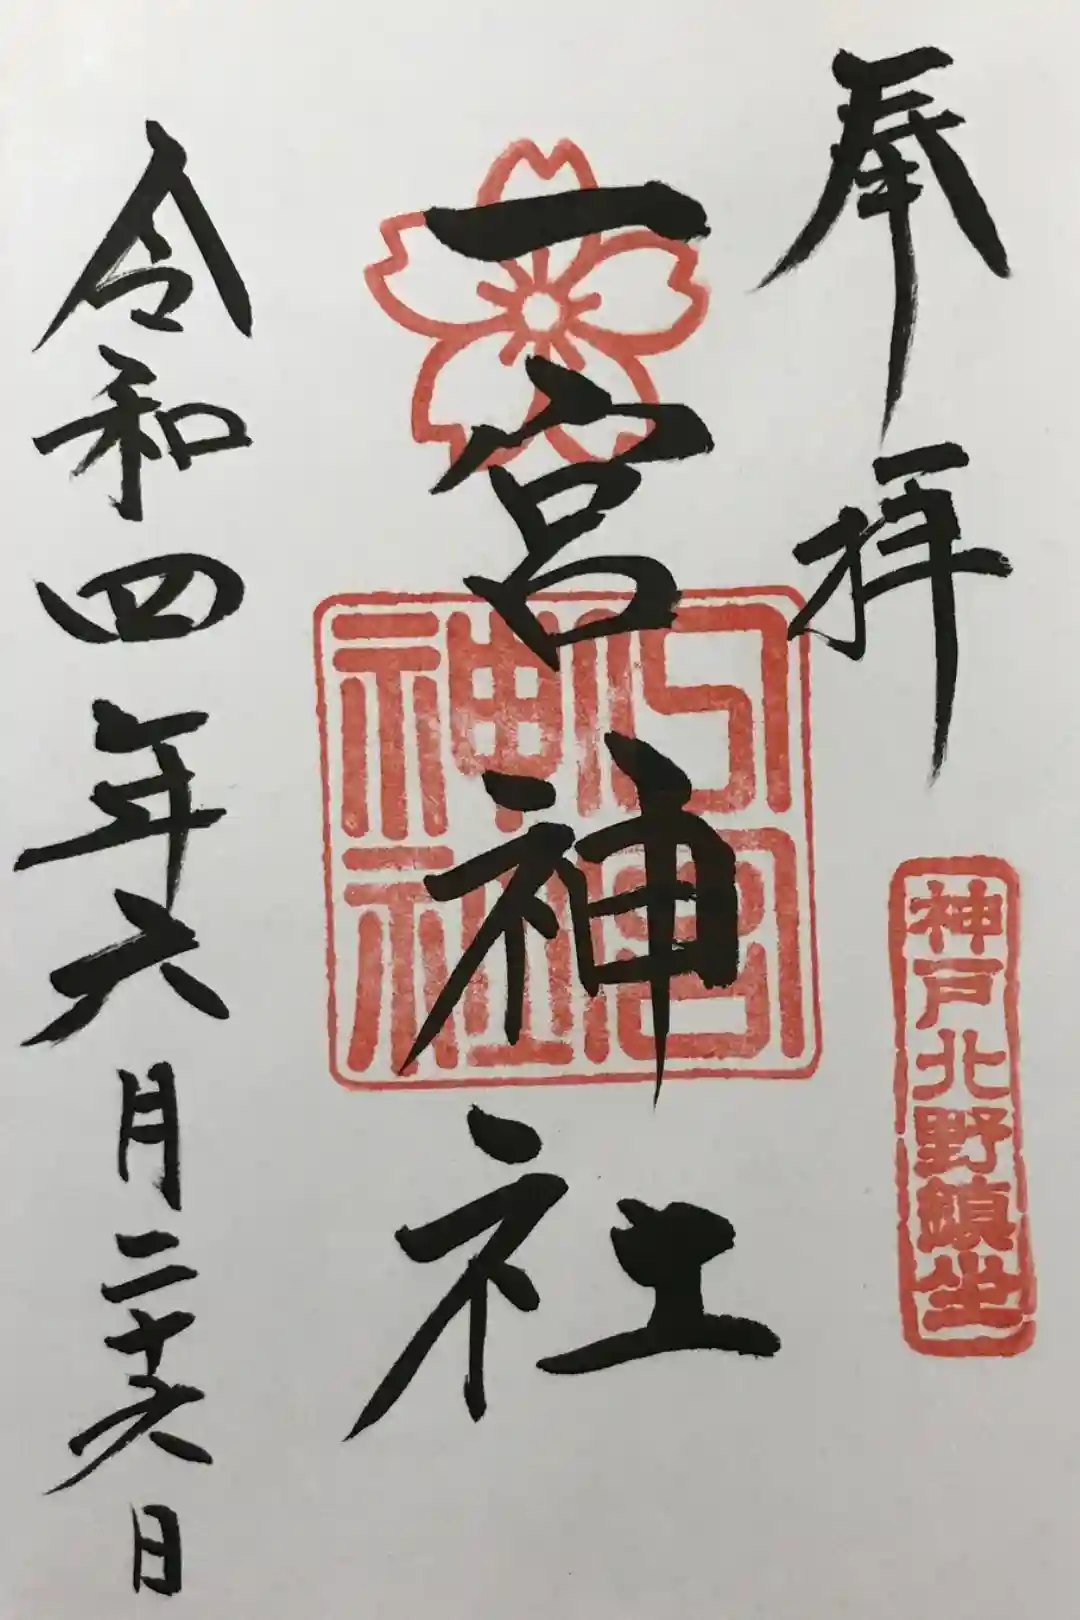 奉拝
神戸北野鎮坐
一宮神社
一宮神社
令和四年六月二十六日